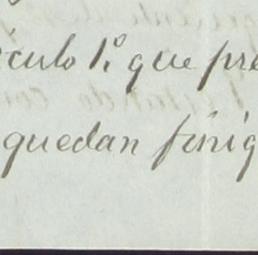 ículo 1º que pre
quedan finiq